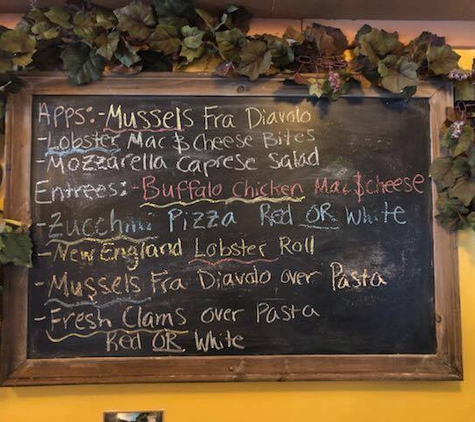 Apps:-Mussels Fra Diavolo
-Lobster Mac $ Cheese Bites
-Mozzarella Caprese Salad
Entrees:-Buffalo Chicken Mac $ cheese
-Zucchini Pizza Red OR White
-New England Lobster Roll
-Mussels Fra Diavolo over Pasta
-Fresh Clams over Pasta
Red OR White